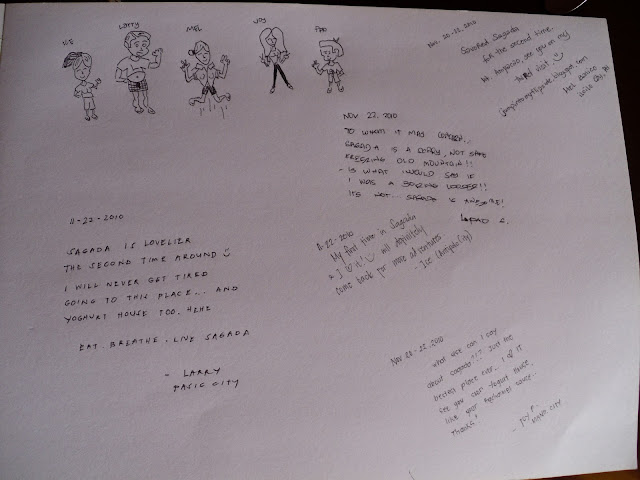 ICE
LARRY
MEL
JOY
PAO
Nov. 20-22, 2010
Sagada
for the second time.
see you on my
third visit.
Pasig City, PH
NOV 22, 2010
TO WHOM IT MAY CONCERN..
SAGADA IS A CREEPY, NOT SAFE
FREEZING OLD MOUNTAIN!!
- IS WHAT I WOULD SAY IF
I WAS A BORING LOSER!!
ITS NOT... SAGADA IS AWESOME!
11-22-2010
SAGADA IS LOVELIER
THE SECOND TIME AROUND
I WILL NEVER GET TIRED
GOING TO THIS PLACE... AND
YOGHURT HOUSE TOO. HEHE
EAT. BREATHE. LIVE SAGADA
- LARRY
PASIG CITY
11-22-2010
My first time in Sagada
& I it! will definitely
come back for more adventures
- Ice (Antipolo City)
Nov 20-22, 2010
what else can I say
about Sagada?!? Just the
bestest place ever.. I
your Yogurt House,
THANKS
- JOY P.
CITY